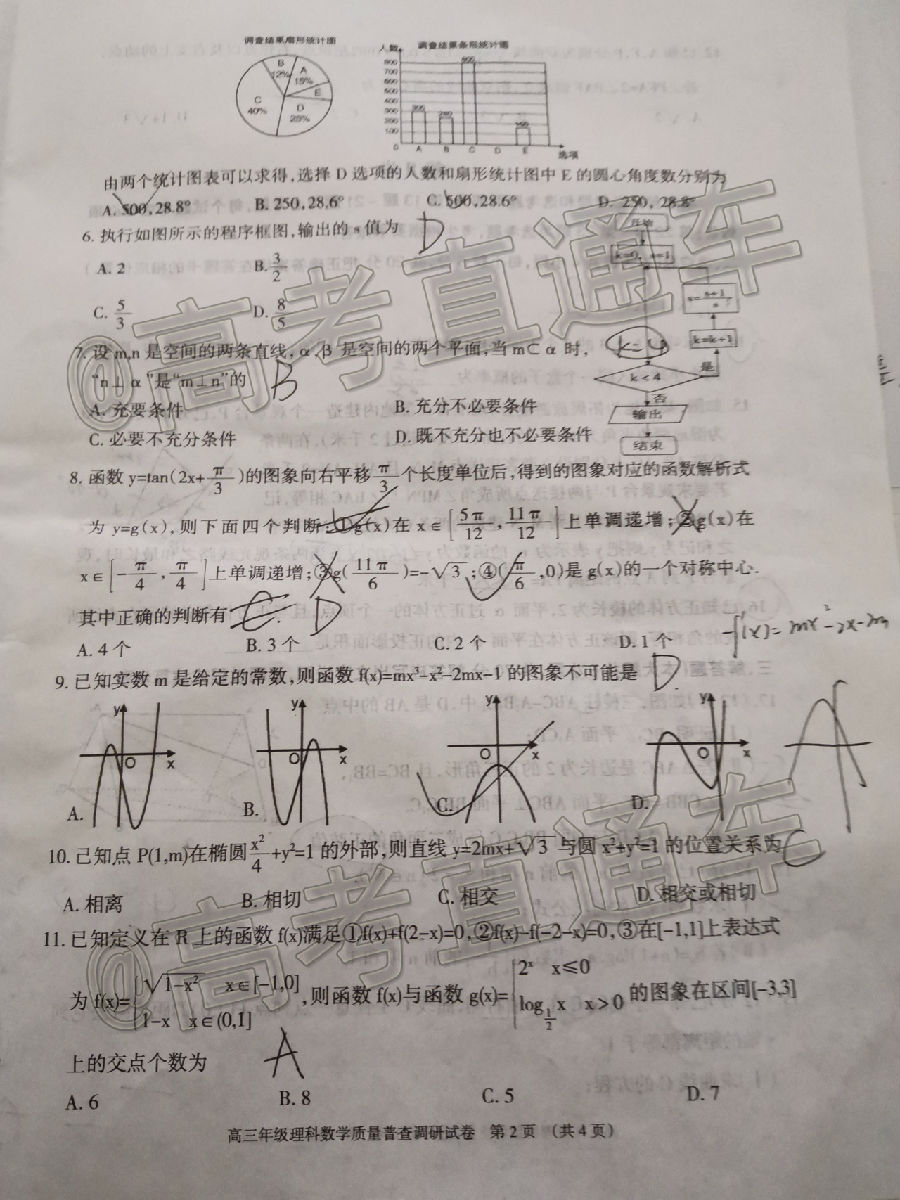 调查结果扇形统计图
B
12%
A
15%
E
D
25%
C
40%
调查结果条形统计图
人数
800
700
600
500
400
300
200
100
0
A B C D E
选项
由两个统计图表可以求得,选择 D 选项的人数和扇形统计图中 E 的圆心角度数分别为
A. 500,28.8° B. 250,28.6° C. 500,28.6° D. 250, 28.8°
6. 执行如图所示的程序框图,输出的 s 值为 D
A. 2 B. 3/2
C. 5/3 D. 8/5
开始
k=0, s=1
s=(s+1)/s
k=k+1
k<4
是
否
输出
结束
7. 设 m,n 是空间的两条直线, α、β 是空间的两个平面,当 m⊂α 时,
“n⊥α”是“m⊥n”的 B
A. 充要条件 B. 充分不必要条件
C. 必要不充分条件 D. 既不充分也不必要条件
8. 函数 y=tan(2x+π/3)的图象向右平移 π/3 个长度单位后,得到的图象对应的函数解析式
为 y=g(x),则下面四个判断:①g(x)在 x∈[5π/12,11π/12]上单调递增;②g(x)在
x∈[-π/4,π/4]上单调递增;③g(11π/6)=-√3;④(π/6,0)是 g(x)的一个对称中心.
其中正确的判断有 D
A. 4 个 B. 3 个 C. 2 个 D. 1 个
9. 已知实数 m 是给定的常数,则函数 f(x)=mx³-x²-2mx-1 的图象不可能是 D.
y
O
x
A.
y
O
x
B.
y
O
x
C.
y
O
x
D.
10. 已知点 P(1,m)在椭圆 x²/4+y²=1 的外部,则直线 y=2mx+√3 与圆 x²+y²=1 的位置关系为 C
A. 相离 B. 相切 C. 相交 D. 相交或相切
11. 已知定义在 R 上的函数 f(x)满足①f(x)+f(2-x)=0,②f(x)-f(-2-x)=0,③在[-1,1]上表达式
为 f(x)={√1-x² x∈[-1,0] 1-x x∈(0,1] ,则函数 f(x)与函数 g(x)={2ˣ x≤0 log½x x>0 的图象在区间[-3,3]
上的交点个数为 A
A. 6 B. 8 C. 5 D. 7
高三年级理科数学质量普查调研试卷 第 2 页 (共 4 页)
@高考直通车
@高考直通车